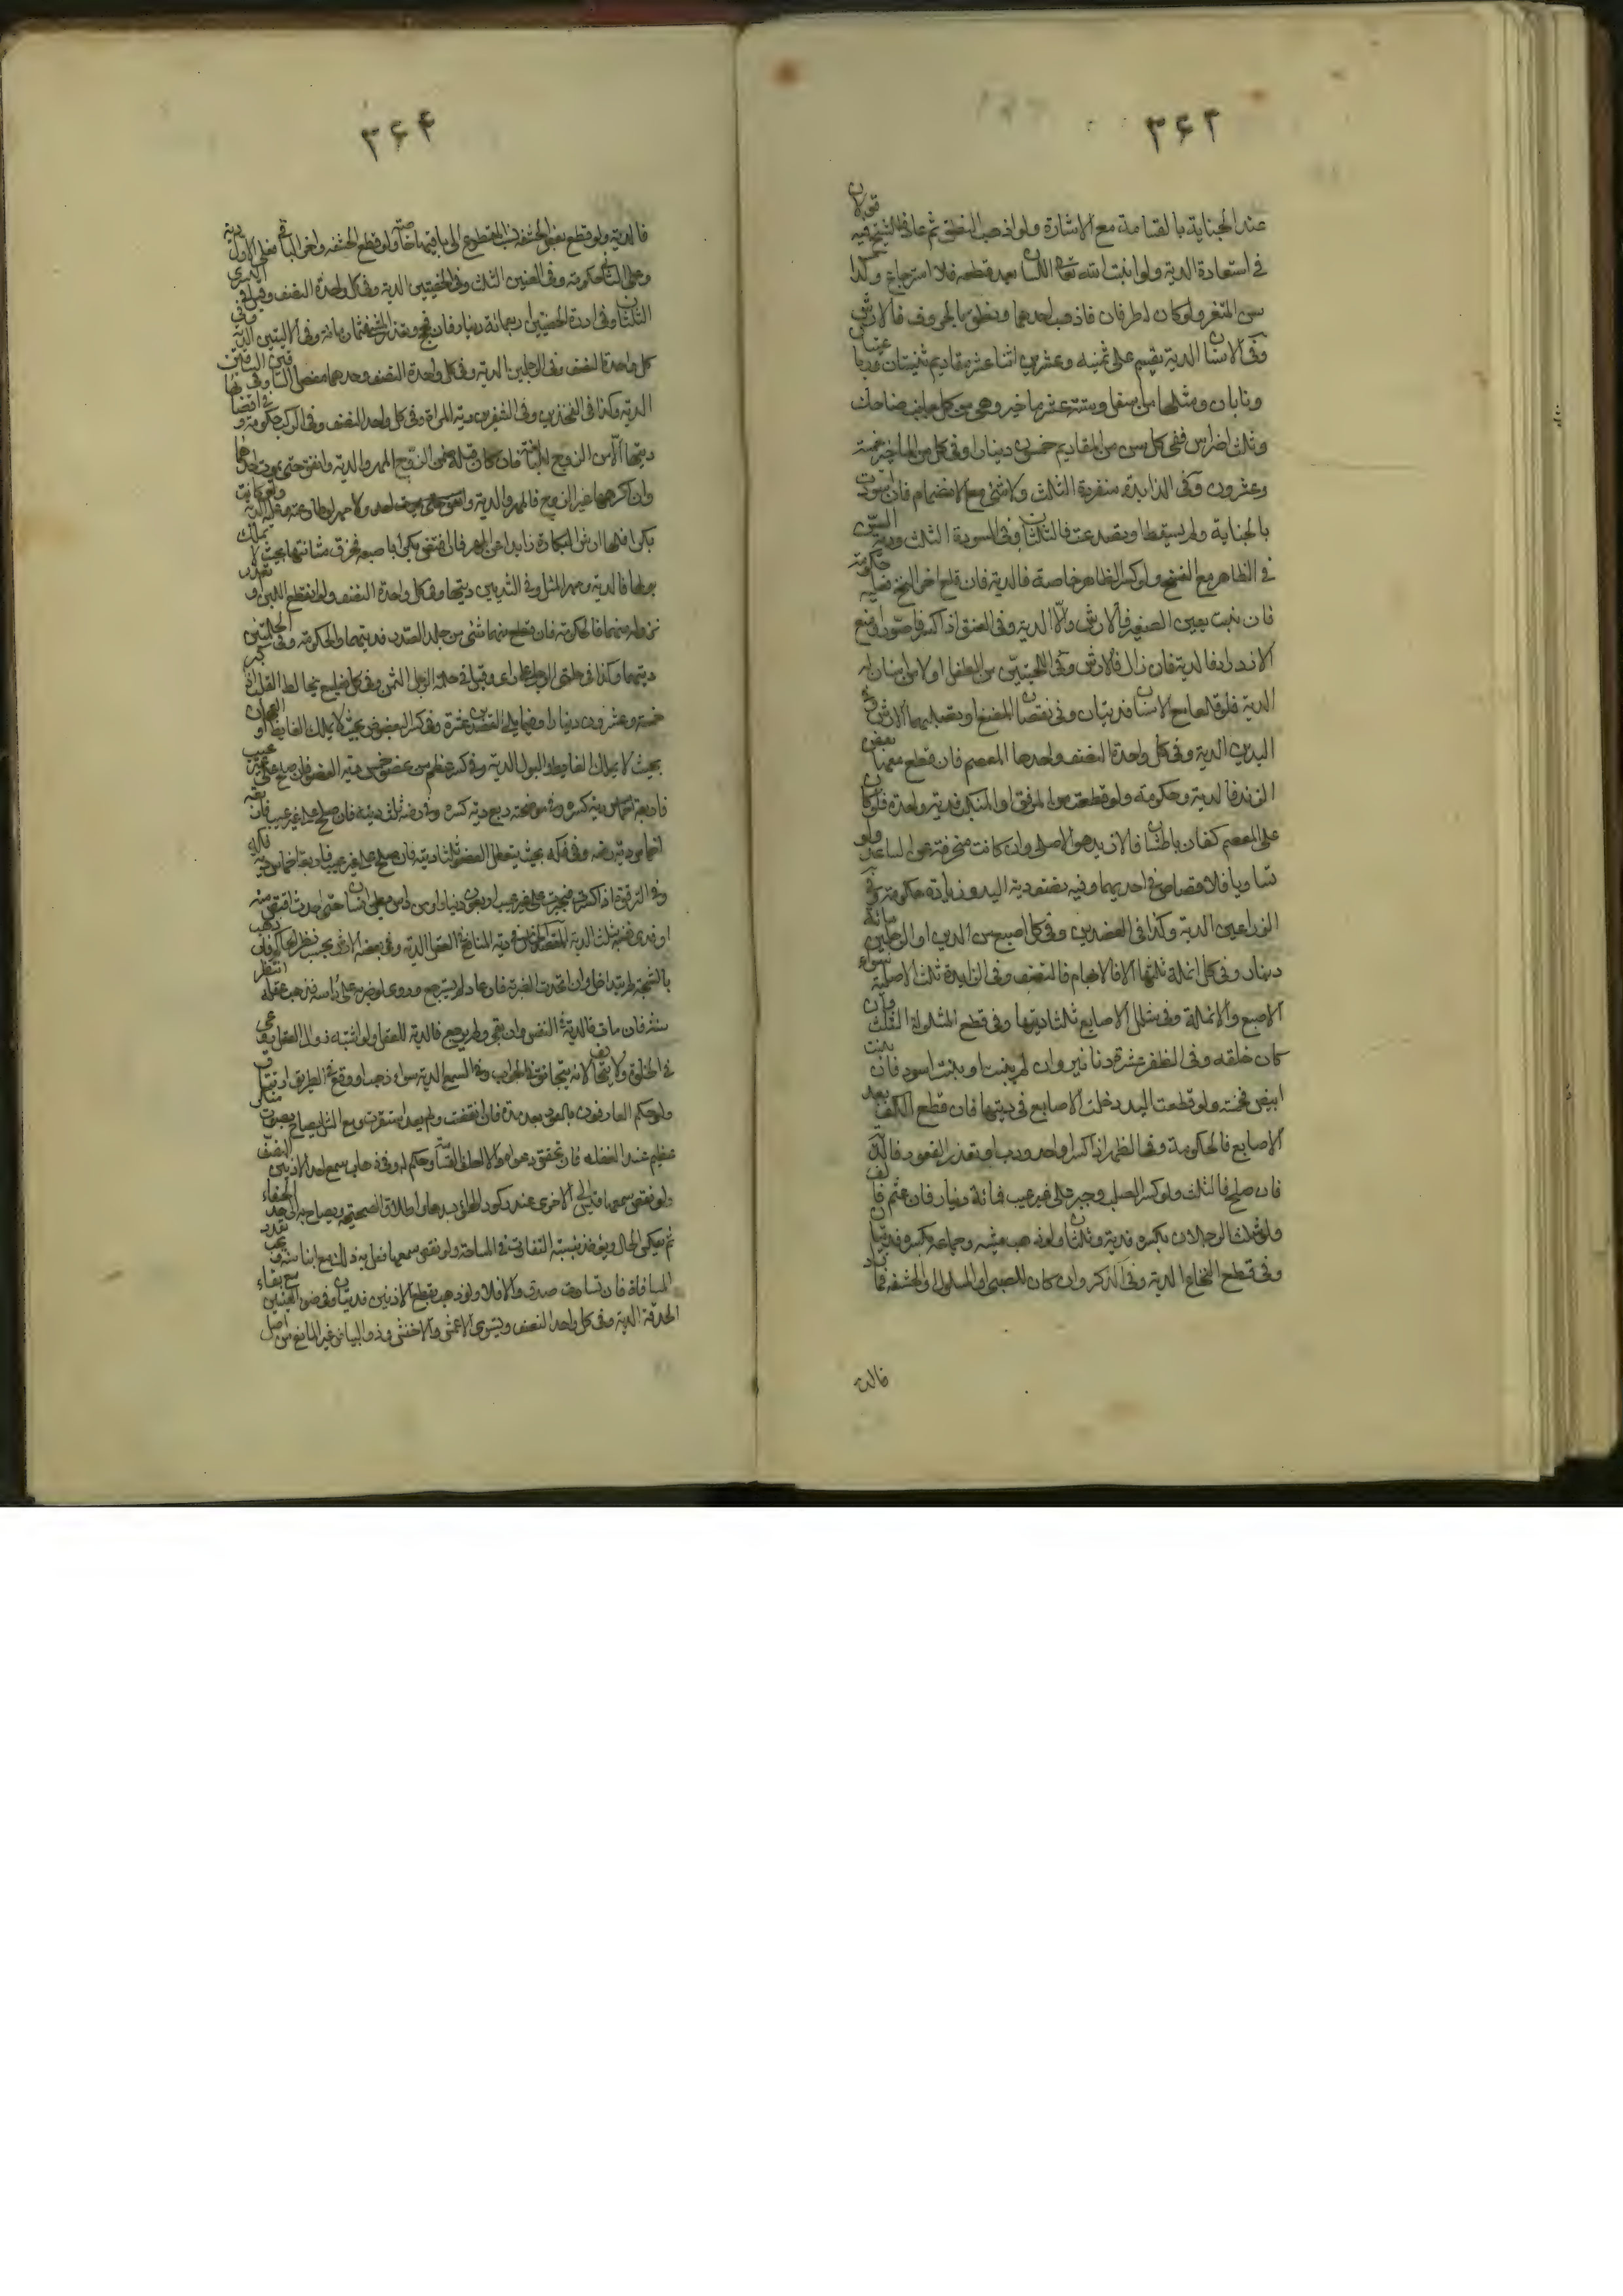 ۳۶۳
عند الجناية بالقسامة مع الاشارة ولو اذهب النطق ثم عاد فللشيخ فيه قولان
في استعادة الدية ولو انبت الله تعالى اللسان بعد قطعه فلا استرجاع وكذا
سن المثغر ولو كان له طرفان فاذهب احدهما ونطق بالحروف فالارش
وفي الاسنان الدية يقسم على ثمنيه وعشرين اثنا عشر مقاديم ثنيتان ورباعيتان
ونابان ومثلها من اسفل وستة عشر مآخير وهي من كل جانب ضاحك
وثلث اضراس ففي كل سن من المقاديم خمسون دينارا وفي كل من المآخير خمسة
وعشرون وفي الزايدة منفردة الثلث ولا شئ مع الانضمام فان اسودت
بالجناية ولم يسقط او تصدعت فالثلثان وفي المسودة الثلث ودية السن
في الظاهر مع السنخ ولو كسر الظاهر خاصة فالدية فان قلع اخر السنخ فعليه حكومة
فان نبتت سن الصغير فالارش والا الدية وفي العنق اذا كسر فاصور او منع
الازدراد فالدية فان زال فالارش وفي اللحيين من الطفل او لا من اسنان له
الدية فلو قلعا مع الاسنان فديتان وفي نقصان المضغ او تصلبهما الارش وفي
اليدين الدية وفي كل واحدة النصف وحدها المعصم فان قطع معها بعض
الزند فالدية وحكومة ولو قطعت من المرفق او المنكب فدية واحدة فلو كان
على المعصم كفان باطشتان فالازيد هو الاصل وان كانت منحرفة عن الساعد ولو
تساويا فلا قصاص في احديهما وفيه نصف دية اليد وزيادة حكومة وفي
الذراعين الدية وكذا في العضدين وفي كل اصبع من اليدين او الرجلين مائة
دينار وفي كل انملة ثلثها الا في الابهام فالنصف وفي الزايدة ثلث الاصلية سواء
الاصبع والانملة وفي شلل الاصابع ثلثا ديتها وفي قطع المشلولة الثلث وان
كان خلقه وفي الظفر عشرة دنانير وان لم ينبت او نبت اسود فان نبت
ابيض فخمسة ولو قطعت اليد دخلت الاصابع في ديتها فان قطع الكف بعد
الاصابع فالحكومة وفي الظهر اذا كسر او احدودب او تعذر القعود فالدية
فان صلح فالثلث ولو كسر الصلب وجبر على غير عيب فمائة دينار فان عثم فالف
ولو شلت الرجلان بكسره فدية وثلثان ولو ذهب مشيه وجماعه بكسره فديتان
وفي قطع النخاع الدية وفي الذكر وان كان للصبي او المسلول او الحشفة فما زاد
فالدية
۳۶۴
فالدية ولو قطع بعض الحشفة نسب المقطوع الى باقيها خاصة ولو قطع الحشفة واخر الباقي فعلى الاول دية
وعلى الثاني حكومة وفي العنين الثلث وفي الخصيتين الدية وفي كل واحدة النصف وقيل في اليسرى
الثلثان وفي ادرة الخصيتين اربعمائة دينار فان فحج وتعذر المشي فثمان مائة وفي الاليتين الدية وفي
كل واحدة النصف وفي الرجلين الدية وفي كل واحدة النصف وحدهما مفصل الساق وفي الساقين
الدية وكذا في الفخذين وفي الشفرين دية المراة وفي كل واحد النصف وفي الركب حكومة وفي افضائها
ديتها الا من الزوج للبالغة فان كان قبله ضمن الزوج المهر والدية وانفق حتى يموت احدهما
وان اكرهها غير الزوج فالمهر والدية ولا مهر لو طاوعته وعليه الدية ولو كانت
بكرا فلها ارش البكارة زايدا عن المهر فان افتض بكرا باصبعه فخرق مثانتها بحيث لا تملك
بولها فالدية ومهر المثل وفي الثديين ديتها وفي كل واحدة النصف ولو انقطع اللبن او تعذر
نزوله منهما فالحكومة فان قطع منهما شئ من جلد الصدر فديتهما والحكومة وفي الحلمتين
ديتهما وكذا في حلمتي الرجل وقيل في حلمة الرجل الثمن وفي كل ضلع يخالط القلب اذا كسر
خمسة وعشرون دينارا وفيما يلي العضدين عشرة وفي كسر البعصوص بحيث لا يملك الغايط او العجان
بحيث لا يملك الغايط والبول الدية وفي كسر عظم من عضو خمس دية العضو فان صلح على غير عيب
فاربعة اخماس دية كسره وفي موضحته ربع دية كسره وفي رضه ثلث ديته فان صلح على غير عيب فاربعة
اخماس دية رضه وفي فكه بحيث يتعطل العضو ثلثا ديته فان صلح على غير عيب فاربعة اخماس دية فكه
وفي الترقوة اذا كسرت فجبرت على غير عيب اربعون دينارا ومن داس بطن انسان حتى احدث اقتص منه
او فدى بثلث الدية المقصد الثاني في دية المنافع في العقل الدية وفي بعضه الارش بحسب نظر الحاكم فان ذهب
بالشجة لم يتداخل وان اتحدت الضربة فان عاد لم يسترجع وروى لو ضربه على راسه فذهب عقله انتظر
سنة فان مات فالدية في النفس وان بقي ولم يرجع فالدية للعقل ولو اشتبه زوال العقل روعي
في الخلوة ولا يحلف لانه يتجانن في الجواب وفي السمع الدية سواء ذهب او وقع في الطريق ارتتاق
ولو حكم العارفون بالعود بعد مدة فان انقضت ولم يعد استقرت ومع الشك يصاح بصوت منكر
عظيم عند الغفلة فان تحقق دعواه والا احلف القسامة وحكم له وفي ذهاب سمع احد الاذنين النصف
ولو نقص سمعها قيس الى الاخرى عند ركود الهواء بسدها واطلاق الصحيحة ويصاح به الى حد الخفاء
ثم يعكس الحال ويؤخذ بنسبة التفاوت في المساحة ولو نقص سمعهما فعل به ذلك مع ابناء سنه ويجب تعدد
المسافة فان تساوت صدق والا فلا ولو ذهب بقطع الاذنين فديتان وفي ضوء العينين مع بقاء
الحدقة الدية وفي كل واحد النصف ويستوي الاعمش والاخفش وذو البياض غير المانع من اصل